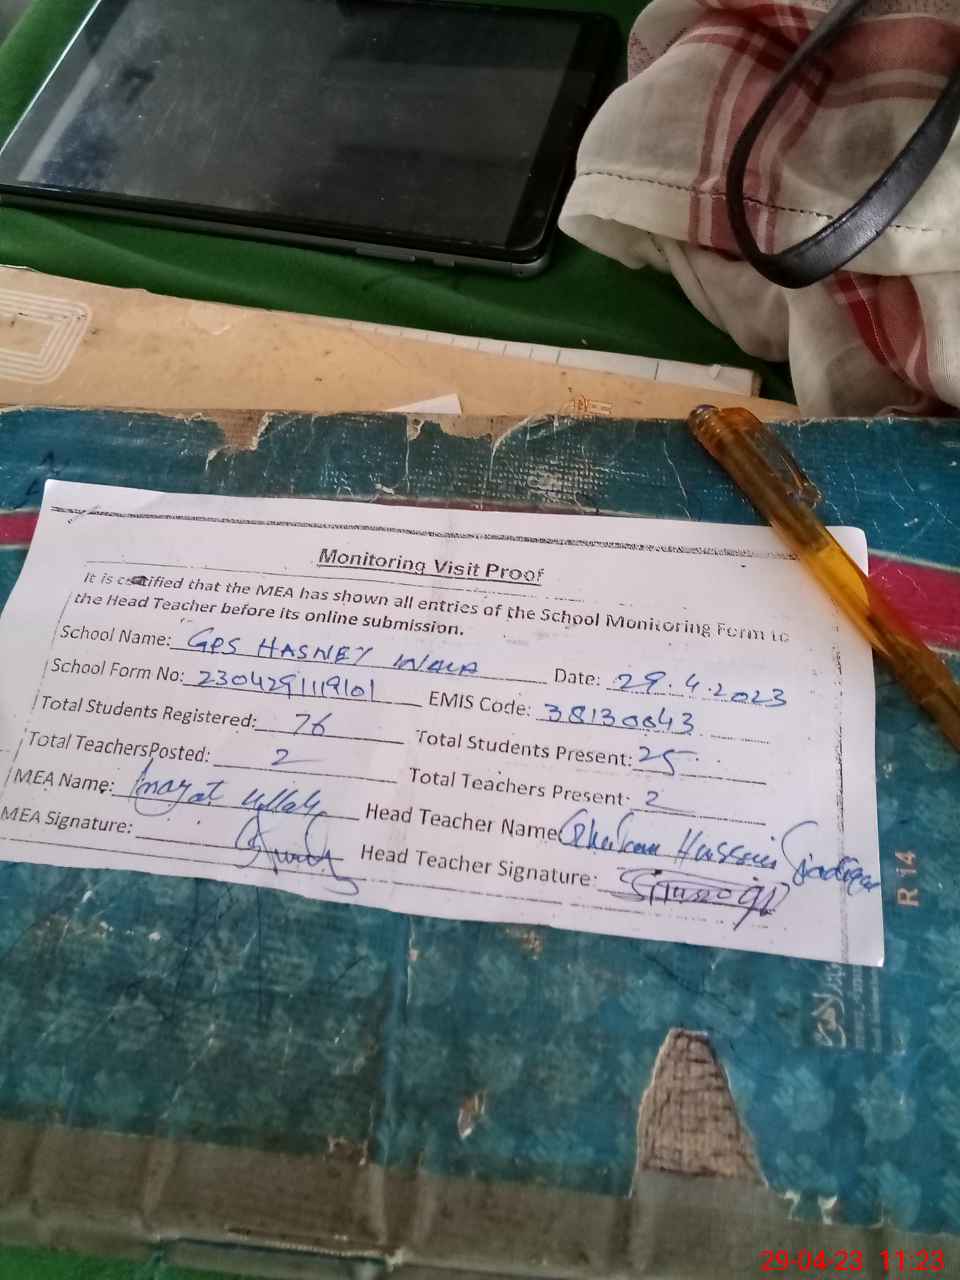 Monitoring Visit Proof
It is certified that the MEA has shown all entries of the School Monitoring Form to
the Head Teacher before its online submission.
School Name: GPS HASNEY WALA Date: 29.4.2023
School Form No: 2304291119101 EMIS Code: 38130643
Total Students Registered: 76 Total Students Present: 25
Total TeachersPosted: 2 Total Teachers Present: 2
MEA Name: Inayat Ullah Head Teacher Name Hussain
MEA Signature: Head Teacher Signature:
R 14
29-04-23 11:23